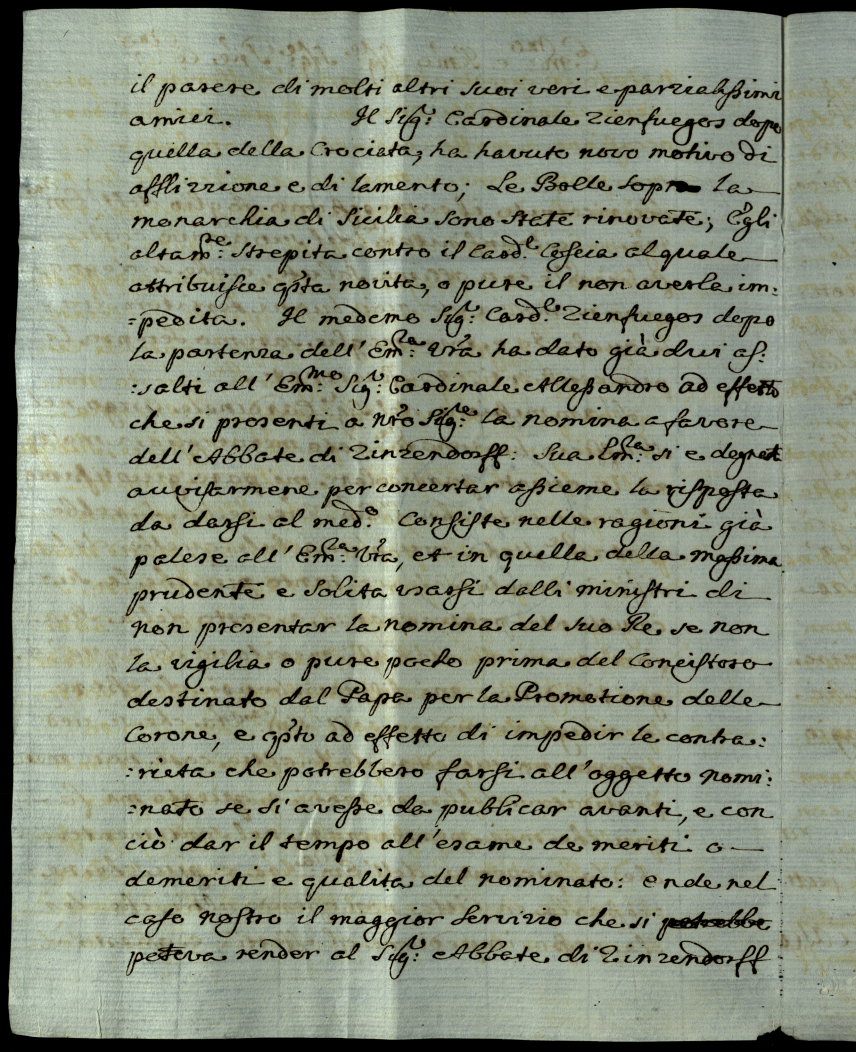 il parere di molti altri suoi veri e parzialissimi
amici. Il Sig.r Cardinale Zienfuegos dopo
quella della Crociata, ha havuto novo motivo di
afflizzione e di lamento; Le Bolle sopra la
monarchia di Sicilia sono state rinovate; Egli
altam.te strepita contro il Card.l Coscia al quale
attribuisce q'sta novita, o pure il non averla im:
:pedita. Il medemo Sig.r Card.l Zienfuegos dopo
la partenza dell' Em.za Vra ha dato già dui as:
:salti all' Em.mo Sig.r Cardinale Allessandro ad effetto
che si presenti à Nro Sig.re la nomina a favore
dell' Abbate di Zinzendorff: Sua Em.za si e degnata
auvisarmene per concertar assieme la risposta
da darsi al med.o Consiste nelle ragioni già
palese all' Em.za Vra, et in quella della massima
prudente e solita usarsi dalli ministri di
non presentar la nomina del suo Re se non
la vigilia o pure pocho prima del Concistoro
destinato dal Papa per la Promotione delle
Corone, e q'sto ad effetto di impedir le contra:
:rieta che potrebbero farsi all' oggetto nomi:
:nato se si avesse da publicar avanti, e con
ciò dar il tempo all' esame de meriti o
demeriti e qualita del nominato: ende nel
caso nostro il maggior servizio che si potrebbe
poteva render al Sig.r Abbate di Zinzendorff